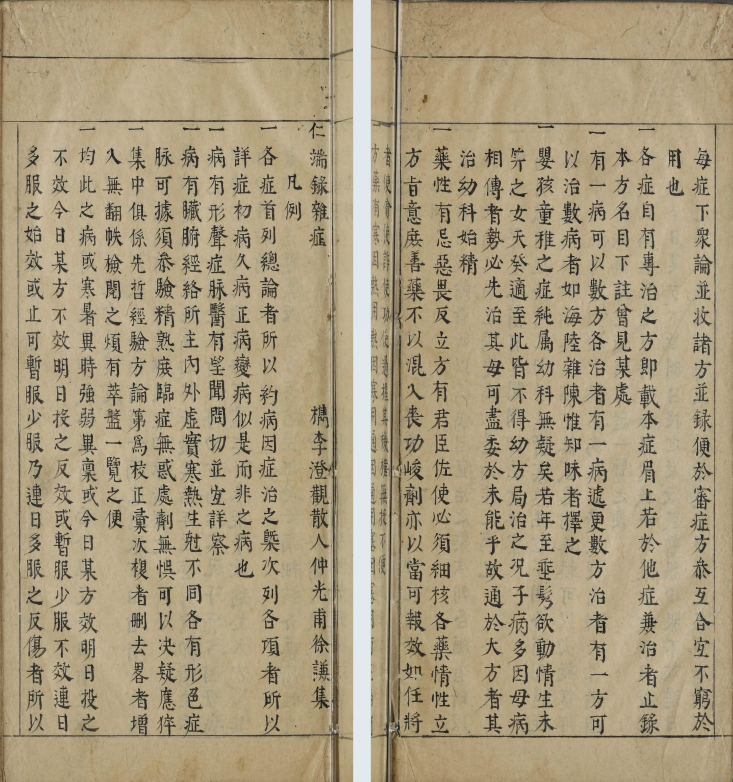 仁端錄雜症　檇李澄觀散人仲光甫徐謙集
凡例
一各症首列總論者所以約病因症治之槩次列各項者所以
詳症初病久病正病變病似是而非之病也
一病有形聲症脉醫有望聞問切並宜詳察
一病有臟腑經絡所主內外虛實寒熱生尅不同各有形色症
脉可據須叅驗精熟庶臨症無惑處劑無悞可以决疑應猝
一集中俱係先哲經驗方論第為校正彚次複者刪去畧者增
入無翻帙檢閱之煩有萃盤一覽之便
一均此之病或寒暑異時強弱異禀或今日某方效明日投之
不效今日某方不效明日投之反效或暫服少服不效連日
多服之始效或止可暫服少服乃連日多服之反傷者所以
每症下衆論並收諸方並錄便於審症方叅互合宜不窮於
用也
一各症自有專治之方即載本症眉上若於他症兼治者止錄
本方名目下註曾見某處
一有一病可以數方各治者有一病遞更數方治者有一方可
以治數病者如海陸雜陳惟知味者擇之
一嬰孩童稚之症純属幼科無疑矣若年至垂髫欲動情生未
笄之女天癸適至此皆不得幼方局治之况子病多因母病
相傳者勢必先治其母可盡委於未能乎故通於大方者其
治幼科始精
一藥性有忌惡畏反立方有君臣佐使必須細核各藥情性立
方㫖意庶善藥不以混入喪功峻劑亦以當可報效如任將